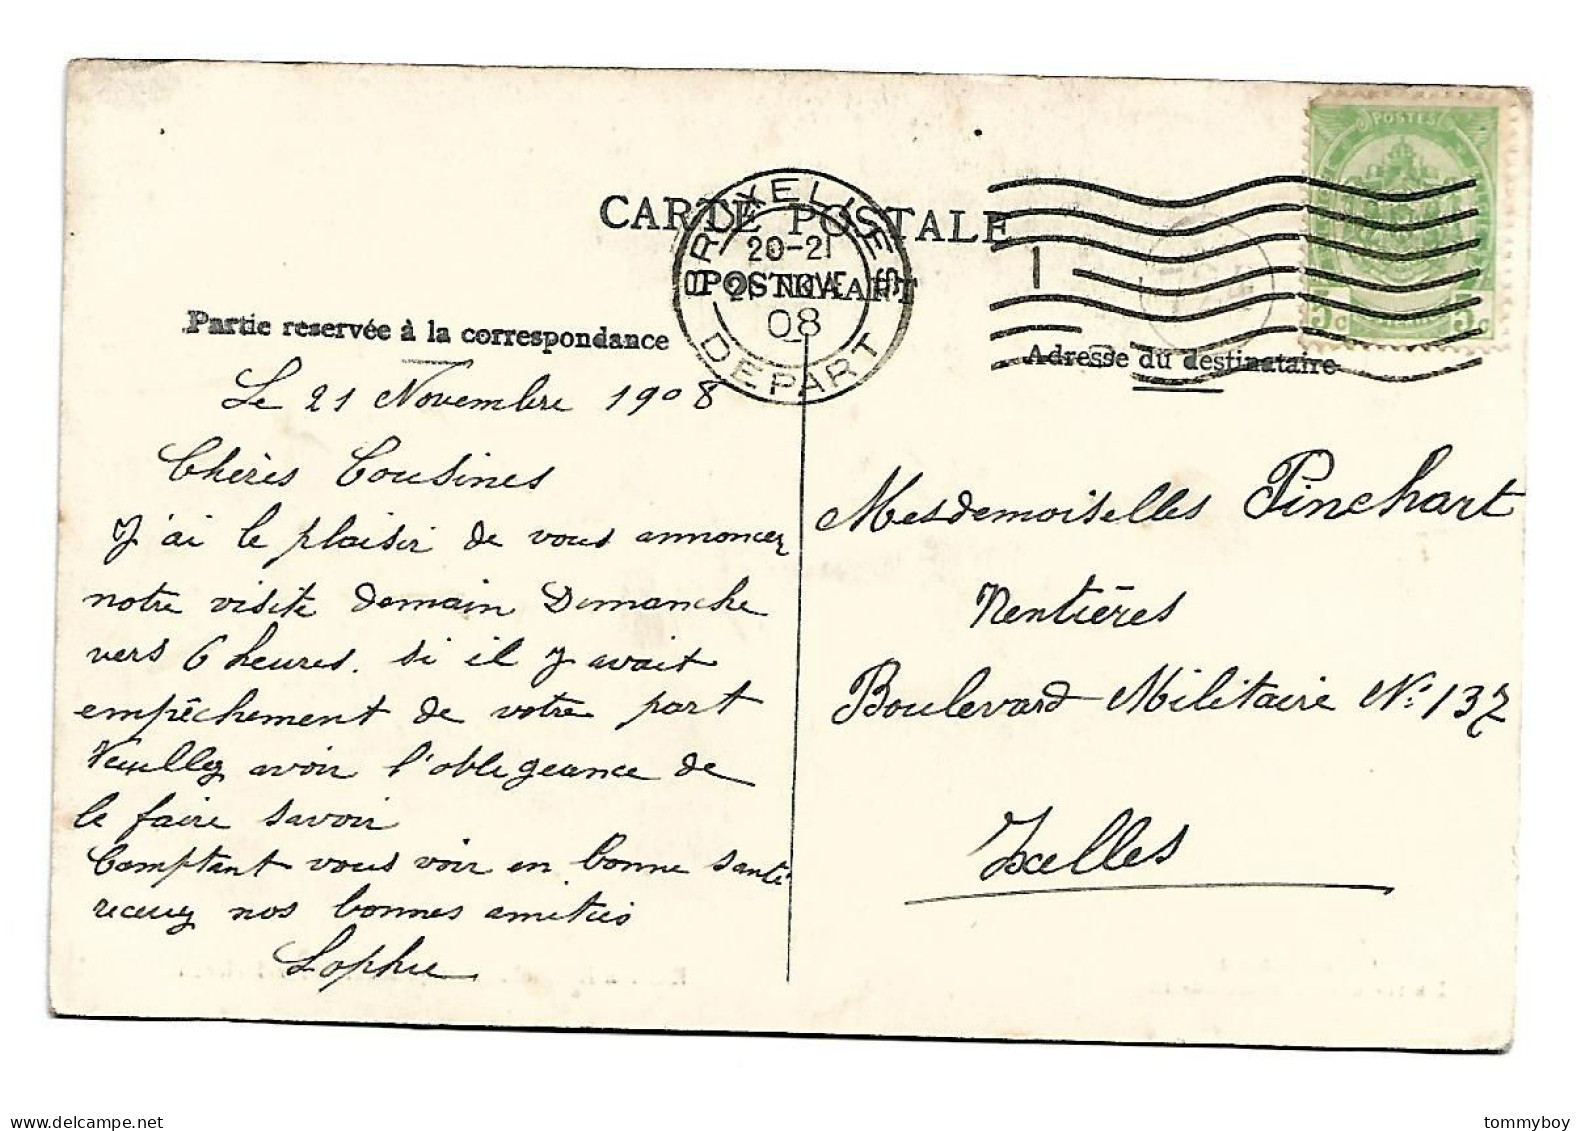 CARTE POSTALE
POSTKAART
BRUXELLES
20-21
21 NOVE
08
DEPART
1
POSTES
5c 5c
Partie reservée à la correspondance
Adresse du destinataire
Le 21 Novembre 1908
Chères Cousines
J'ai le plaisir de vous annoncer
notre visite demain Dimanche
vers 6 heures. si il y avait
empêchement de votre part
Veuillez avoir l'obligeance de
le faire savoir
Comptant vous voir en bonne santé
recevez nos bonnes amitiés
Sophie
Mesdemoiselles Pinchart
Rentières
Boulevard Militaire N: 137
Ixelles
delcampe.net
tommyboy